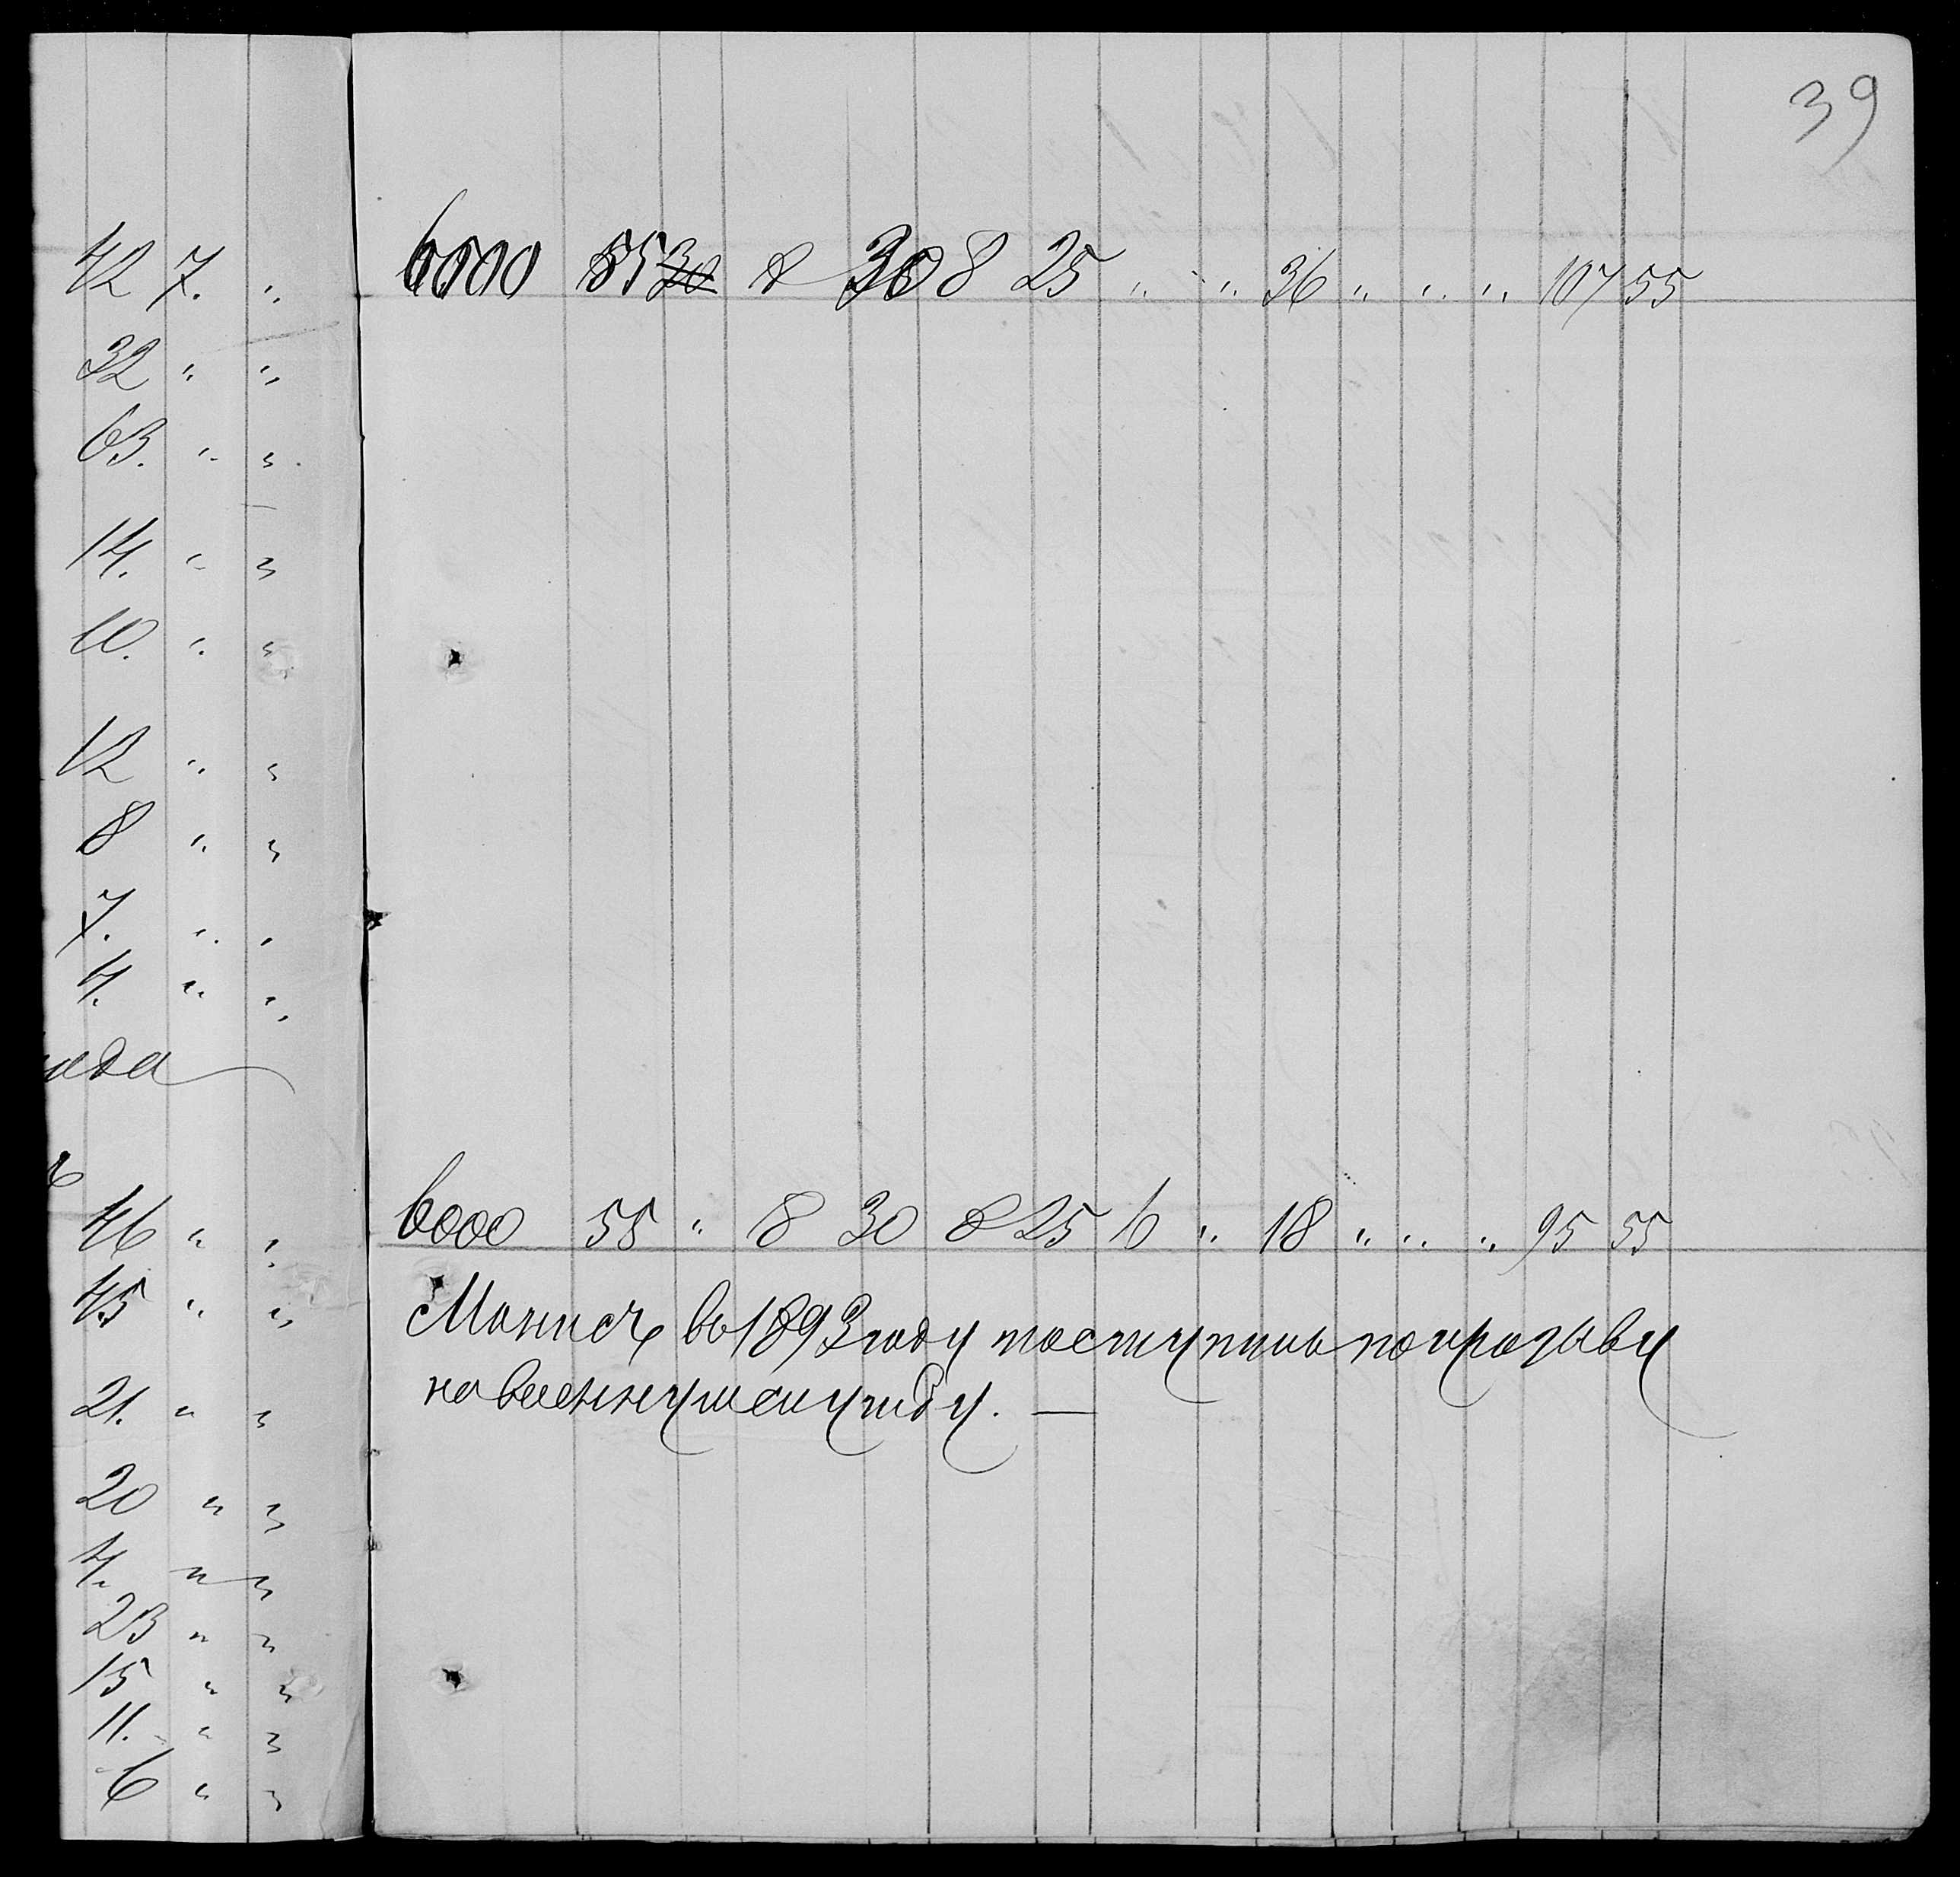 39
42 7. „ 6000 55 30 8 30 8 25 „ „ 36 „ „ „ 107 55
32 „ „
63. „ „
14. „ „
10. „ „
12 „ „
8 „ „
7. „ „
4. „ „
46 „ „ 6000 55 „ 8 30 8 25 6 „ 18 „ „ „ 95 55
45 „ „
въ 1893 году поступилъ по призыву
на военную службу. —
21. „ „
20 „ „
4. „ „
23 „ „
15 „ „
11. „ „
6 „ „